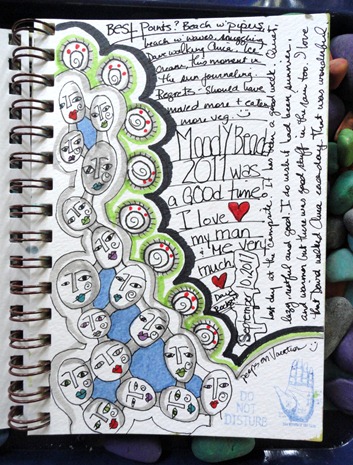 Best Points? Beach w pipers,
beach w waves, snuggling,
Dave walking Chica, Ice
Cream, this moment in
the sun journaling.
Regrets - Should have
smiled more + eaten
more veg.
Moody Beach
2011 was
a GOOD time.
I love
my man
+ Me very
much!
Dave
September 10, 2011
last day at the campsite. It has been a good week. Quiet,
lazy, restful and good. I do wish it had been sunnier
and warmer but there was good stuff in the rain too. I love
that Dave walked Chica each day. That was wonderful
DO
NOT
DISTURB